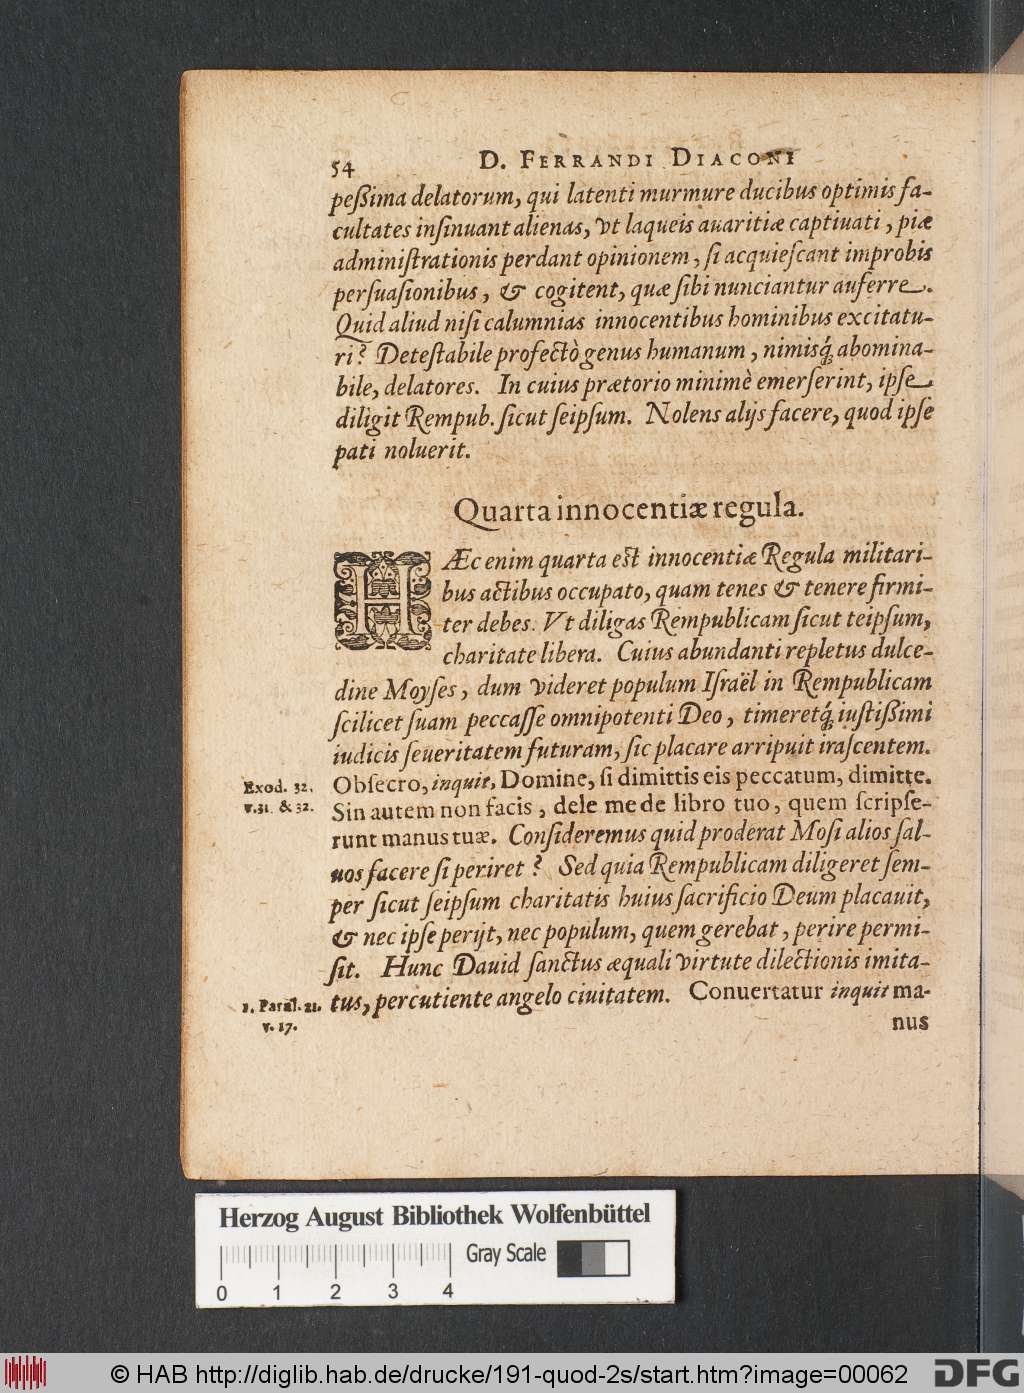 54 D. FERRANDI DIACONI
peßima delatorum, qui latenti murmure ducibus optimis fa-
cultates inſinuant alienas, vt laqueis auaritiæ captiuati, piæ
adminiſtrationis perdant opinionem, ſi acquieſcant improbis
perſuaſionibus, & cogitent, quæ ſibi nunciantur auferre.
Quid aliud niſi calumnias innocentibus hominibus excitatu-
ri? Deteſtabile profectò genus humanum, nimisq́; abomina-
bile, delatores. In cuius prætorio minimè emerſerint, ipſe
diligit Rempub. ſicut ſeipſum. Nolens alijs facere, quod ipſe
pati noluerit.
Quarta innocentiæ regula.
HÆc enim quarta eſt innocentiæ Regula militari-
bus actibus occupato, quam tenes & tenere firmi-
ter debes. Vt diligas Rempublicam ſicut teipſum,
charitate libera. Cuius abundanti repletus dulce-
dine Moyſes, dum videret populum Iſraël in Rempublicam
ſcilicet ſuam peccaſſe omnipotenti Deo, timeretq́; iuſtißimi
iudicis ſeueritatem futuram, ſic placare arripuit iraſcentem.
Exod. 32.
v.31. & 32.
Obſecro, inquit, Domine, ſi dimittis eis peccatum, dimitte.
Sin autem non facis, dele me de libro tuo, quem ſcripſe-
runt manus tuæ. Conſideremus quid proderat Moſi alios ſal-
uos facere ſi periret? Sed quia Rempublicam diligeret ſem-
per ſicut ſeipſum charitatis huius ſacrificio Deum placauit,
& nec ipſe perijt, nec populum, quem gerebat, perire permi-
ſit. Hunc Dauid ſanctus æquali virtute dilectionis imita-
1. Paral. 21.
v. 17.
tus, percutiente angelo ciuitatem. Conuertatur inquit ma-
nus
Herzog August Bibliothek Wolfenbüttel
Gray Scale
0 1 2 3 4
© HAB http://diglib.hab.de/drucke/191-quod-2s/start.htm?image=00062 DFG